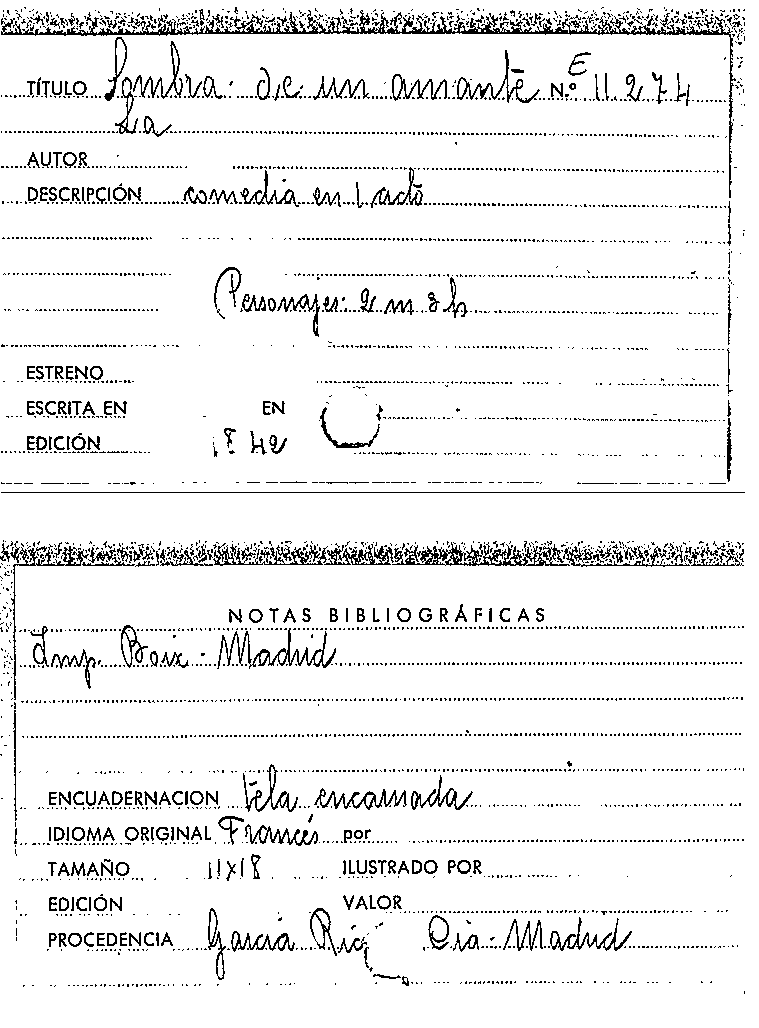 TÍTULO Sombra de un amante N.º E 11.274
La
AUTOR
DESCRIPCIÓN comedia en 1 acto
Personajes: 2 m 3 h
ESTRENO
ESCRITA EN EN
EDICIÓN 1842
NOTAS BIBLIOGRÁFICAS
Imp. Boix - Madrid
ENCUADERNACION tela encarnada
IDIOMA ORIGINAL Francés por
TAMAÑO 11x18 ILUSTRADO POR
EDICIÓN VALOR
PROCEDENCIA García Rico Cia - Madrid